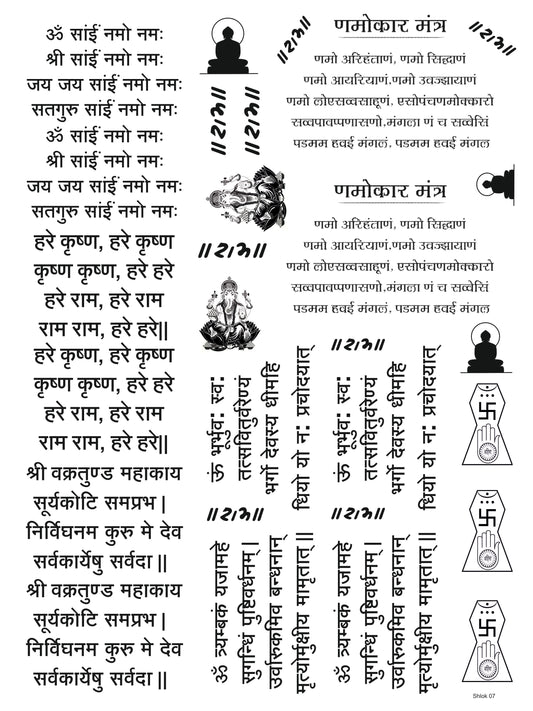 ॐ सांई नमो नमः
श्री सांई नमो नमः
जय जय सांई नमो नमः
सतगुरु सांई नमो नमः
ॐ सांई नमो नमः
श्री सांई नमो नमः
जय जय सांई नमो नमः
सतगुरु सांई नमो नमः
हरे कृष्ण, हरे कृष्ण
कृष्ण कृष्ण, हरे हरे
हरे राम, हरे राम
राम राम, हरे हरे||
हरे कृष्ण, हरे कृष्ण
कृष्ण कृष्ण, हरे हरे
हरे राम, हरे राम
राम राम, हरे हरे||
श्री वक्रतुण्ड महाकाय
सूर्यकोटि समप्रभ|
निर्विघनम कुरु मे देव
सर्वकार्येषु सर्वदा||
श्री वक्रतुण्ड महाकाय
सूर्यकोटि समप्रभ|
निर्विघनम कुरु मे देव
सर्वकार्येषु सर्वदा||
॥राम॥
॥राम॥
॥राम॥
॥राम॥
णमोकार मंत्र
॥राम॥
णमो अरिहंताणं, णमो सिद्धाणं
णमो आयरियाणं.णमो उवज्झायाणं
णमो लोएसव्वसाहूणं, एसोपंचणमोक्कारो
सव्वपावप्पणासणो.मंगला णं च सव्वेसिं
पडमम हवई मंगलं. पडमम हवई मंगल
णमोकार मंत्र
णमो अरिहंताणं, णमो सिद्धाणं
णमो आयरियाणं.णमो उवज्झायाणं
णमो लोएसव्वसाहूणं, एसोपंचणमोक्कारो
सव्वपावप्पणासणो.मंगला णं च सव्वेसिं
पडमम हवई मंगलं. पडमम हवई मंगल
ऊं भूर्भुवः स्वः
तत्सवितुर्वरेण्यं
भर्गो देवस्य धीमहि
धियो यो नः प्रचोदयात्
॥राम॥
ऊं भूर्भुवः स्वः
तत्सवितुर्वरेण्यं
भर्गो देवस्य धीमहि
धियो यो नः प्रचोदयात्
॥राम॥
ॐ त्र्यम्बकं यजामहे
सुगन्धिं पुष्टिवर्धनम्|
उर्वारुकमिव बन्धनान्
मृत्योर्मुक्षीय मामृतात्||
॥राम॥
ॐ त्र्यम्बकं यजामहे
सुगन्धिं पुष्टिवर्धनम्|
उर्वारुकमिव बन्धनान्
मृत्योर्मुक्षीय मामृतात्||
Shlok 07